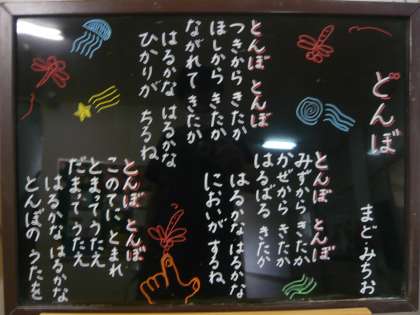 どんぼ
まど・みちお
とんぼ とんぼ
みずから きたか
かぜから きたか
はるばる きたか
はるかな はるかな
においが するね
とんぼ とんぼ
つきから きたか
ほしから きたか
ながれて きたか
はるかな はるかな
ひかりが ちるね
とんぼ とんぼ
このてに とまれ
とまって うたえ
だまって うたえ
はるかな はるかな
とんぼの うたを